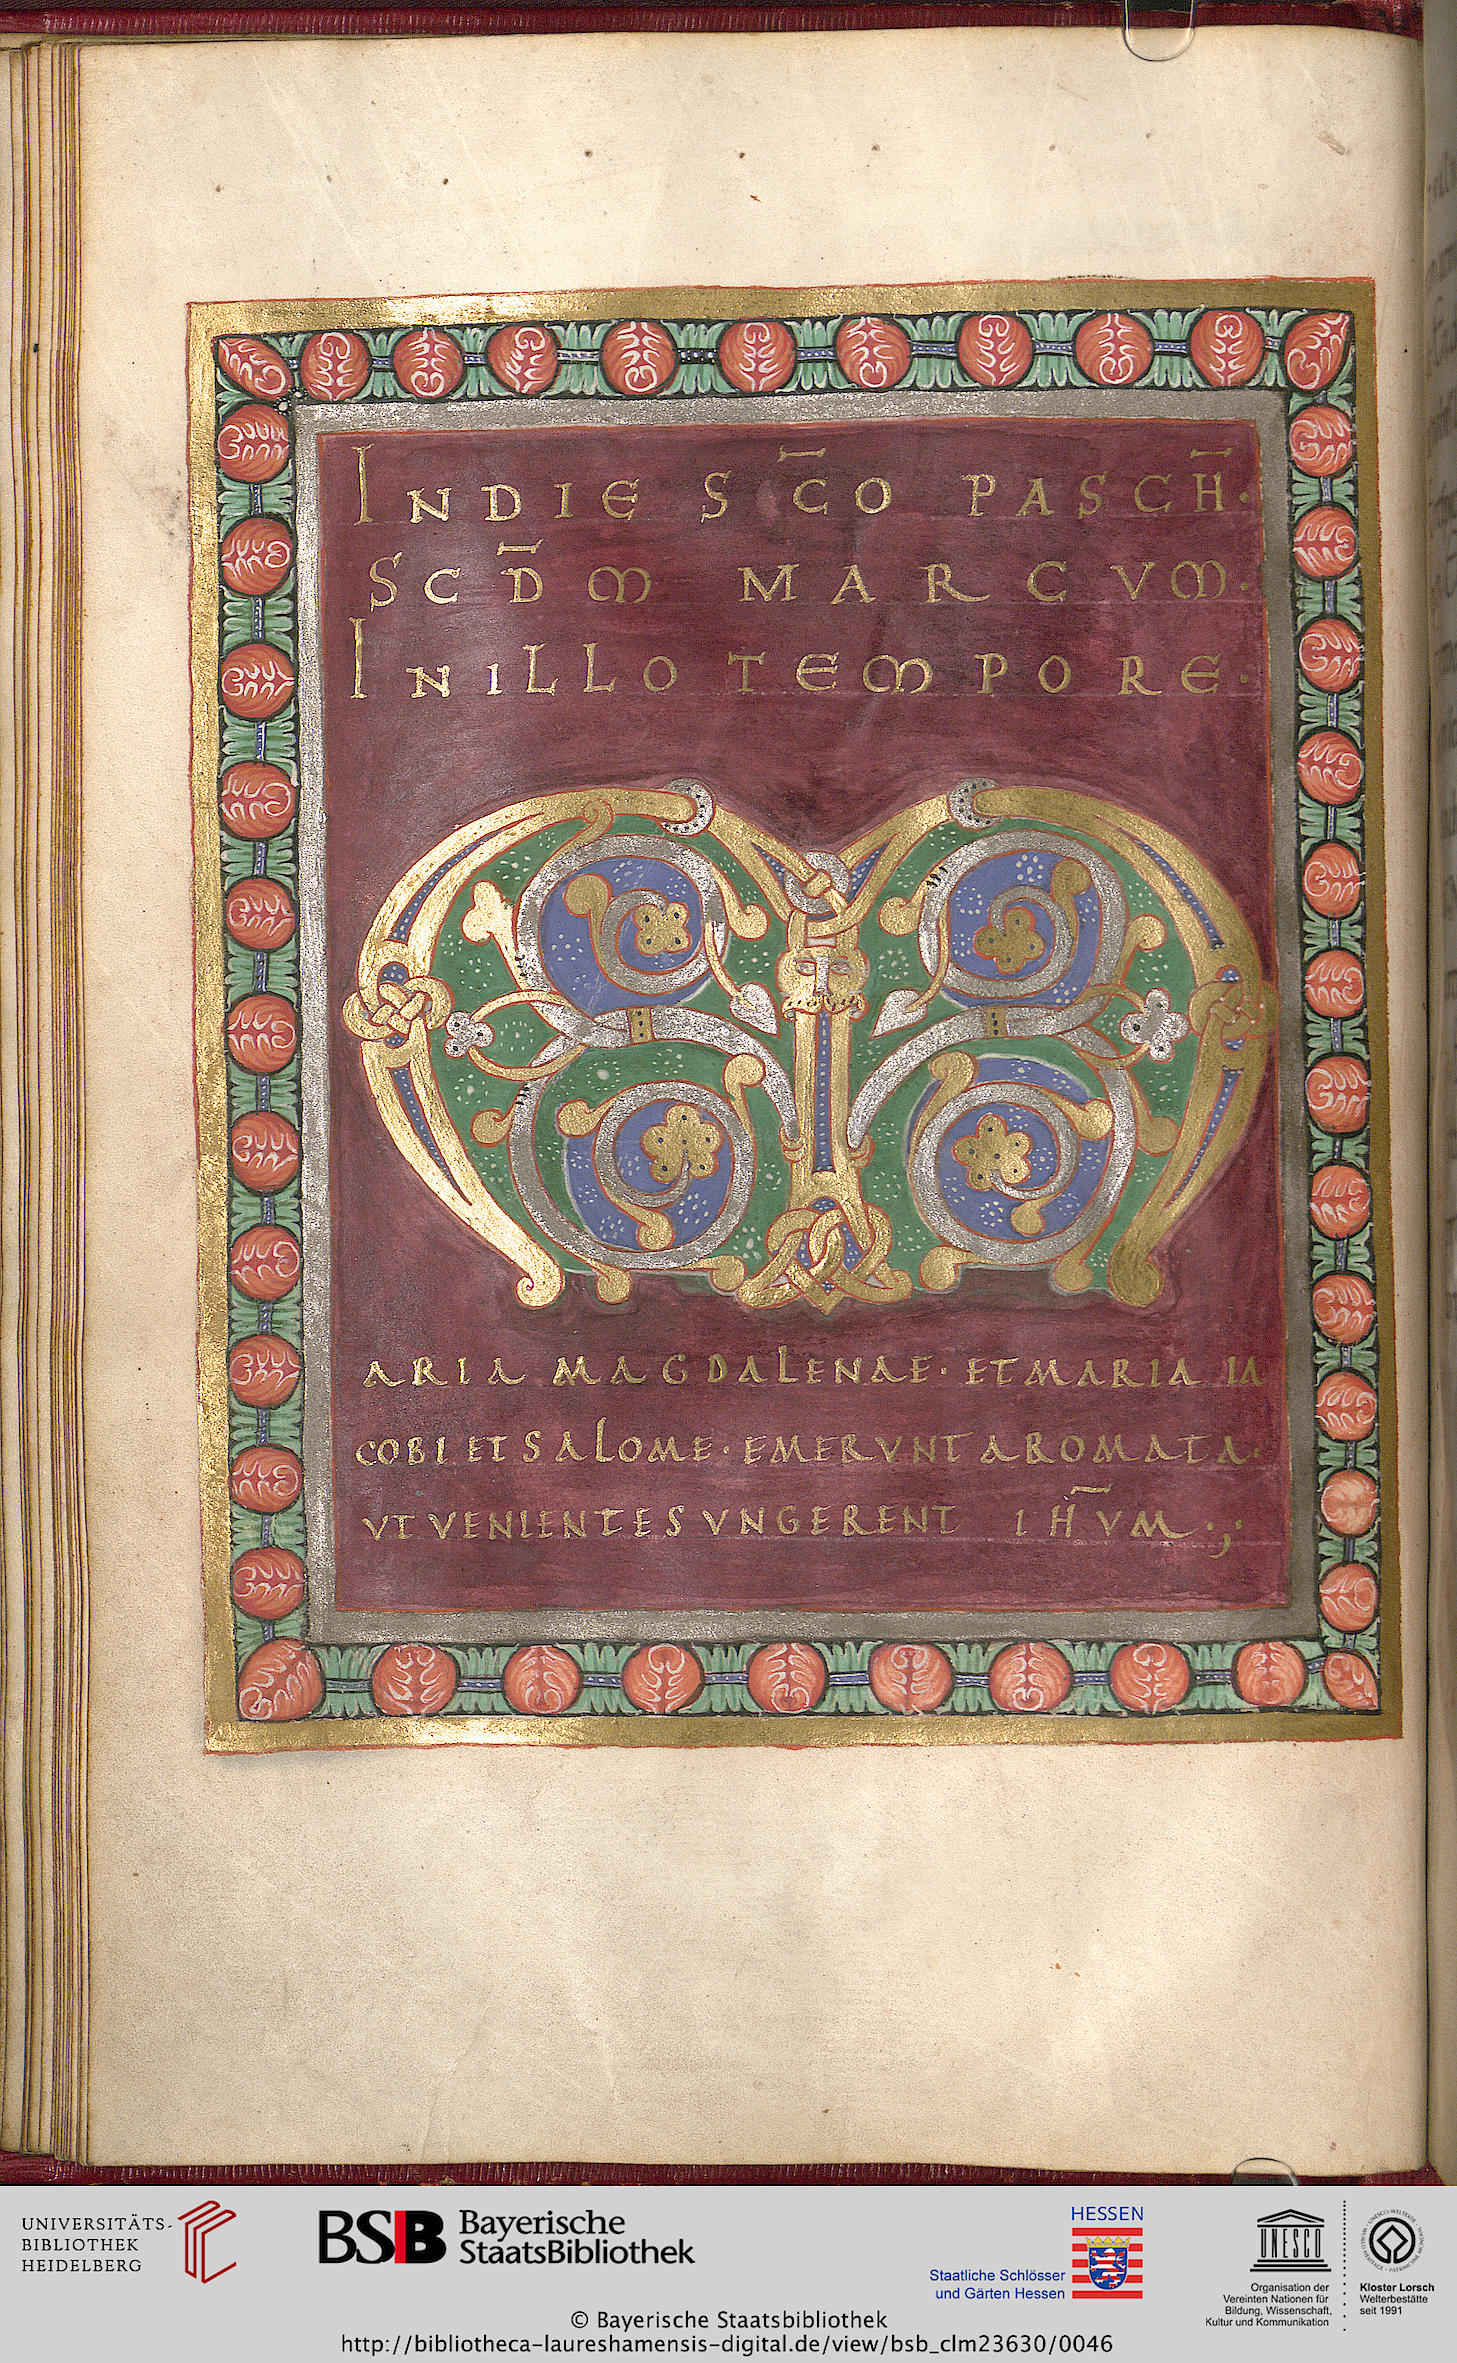 INDIE SCO PASCH·
SCDM MARCVM·
INILLO TEMPORE·
M
ARIA MAGDALENAE· ET MARIA IA
COBI ET SALOME· EMERVNT AROMATA·
VT VENIENTES VNGERENT IHVM·;
UNIVERSITÄTS-
BIBLIOTHEK
HEIDELBERG
BSB Bayerische
StaatsBibliothek
HESSEN
Staatliche Schlösser
und Gärten Hessen
UNESCO
Organisation der
Vereinten Nationen für
Bildung, Wissenschaft,
Kultur und Kommunikation
Kloster Lorsch
Welterbestätte
seit 1991
© Bayerische Staatsbibliothek
http://bibliotheca-laureshamensis-digital.de/view/bsb_clm23630/0046